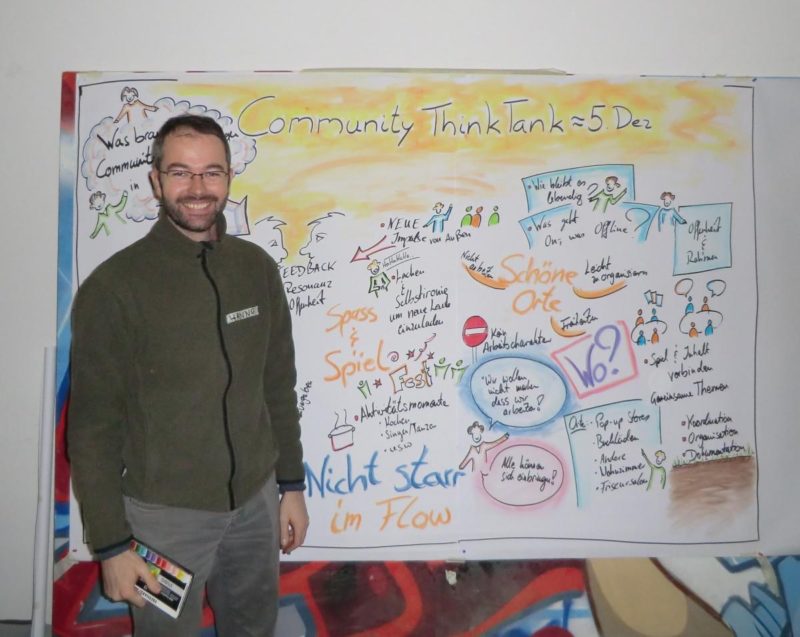 Community ThinkTank ≈ 5. Dez
Was
Community
in
FEEDBACK
Resonanz
Offenheit
• NEUE
Impulse von Außen
• Lachen
&
Selbstironie
um neue Leute
einzuladen
Spass
&
Spiel
Fest
• Aktivitätsmomente
• Kochen
• Singen/Tanzen
• usw
Nicht starr
im Flow
• Wie bleibt es
lebendig?
• Was geht
On-, was Offline?
Offenheit
&
Rahmen
Nicht arbeiten
Schöne
Orte
Leicht
zu organisieren
• Kein
Arbeitscharakter
WO?
• "Wir wollen
nicht merken
dass wir
arbeiten?"
Alle können
sich einbringen?
• Spiel & Inhalt
verbinden
Gemeinsame Themen
• Koordination
• Organisation
• Dokumentation
Orte • Pop-up Stores
• Buchläden
• Andere
• Wohnzimmer
• Friseursalon